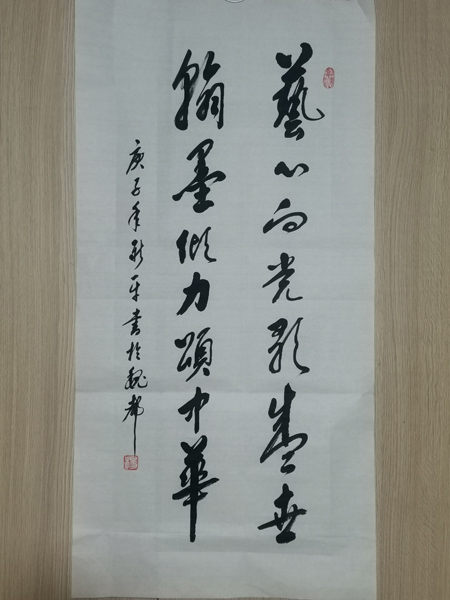 藝心向党歌盛世
翰墨倾力頌中華
庚子年新平書於魏都